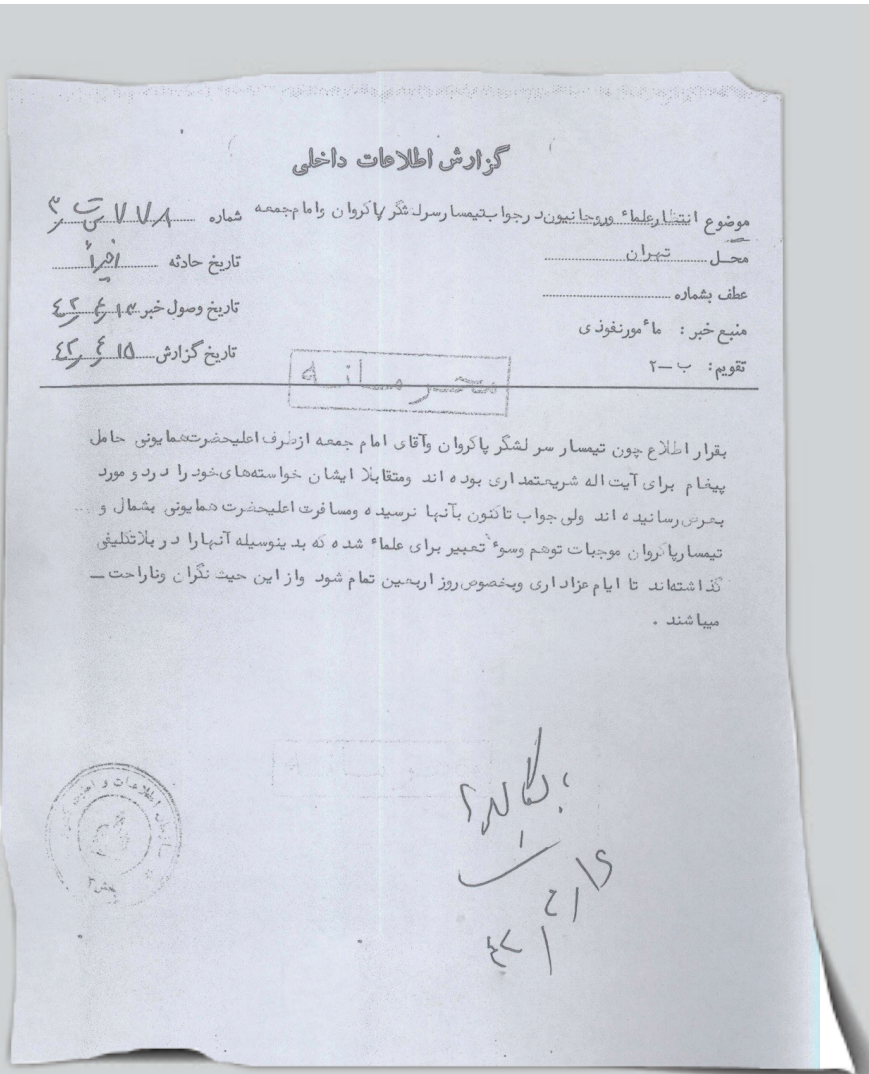 گزارش اطلاعات داخلی
موضوع انتظار علماء وروحانیون در جواب تیمسار سرلشگر پاکروان وامام جمعه
شماره ۷۷۸
محل تهران
تاریخ حادثه اخیراً
عطف بشماره
تاریخ وصول خبر
منبع خبر : مأمور نفوذی
تاریخ گزارش ۱۵ر۴ر۴۲
تقویم : ب — ۲
محرمانه
بقرار اطلاع چون تیمسار سر لشگر پاکروان وآقای امام جمعه ازطرف اعلیحضرت همایونی حامل
پیغام برای آیت اله شریعتمداری بوده اند ومتقابلا ایشان خواسته‌های خود را در دو مورد
بعرض رسانیده اند ولی جواب تاکنون بآنها نرسیده ومسافرت اعلیحضرت همایونی بشمال و
تیمسار پاکروان موجبات توهم وسوء تعبیر برای علماء شده که بدینوسیله آنهارا در بلاتکلیفی
گذاشته‌اند تا ایام عزاداری وبخصوص روز اربعین تمام شود واز این حیث نگران وناراحت —
میباشند .
سازمان اطلاعات و امنیت کشور